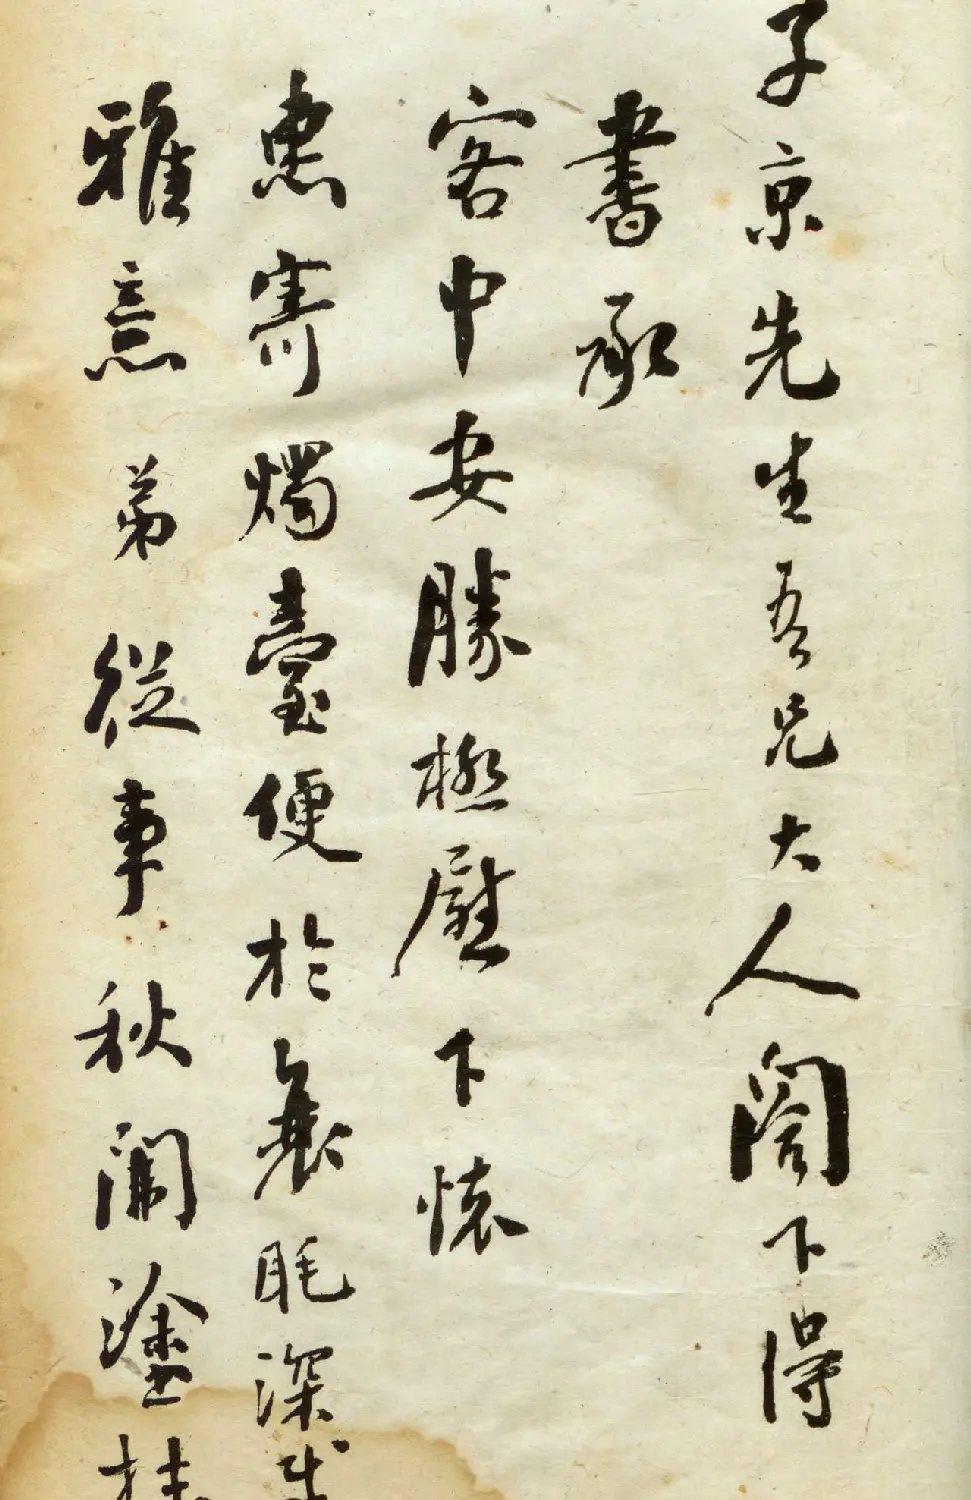 子京先生吾兄大人閣下得
書承
客中安勝極慰下懷
惠寄燭臺便於衰眊深
雅意弟從事秋闈塗